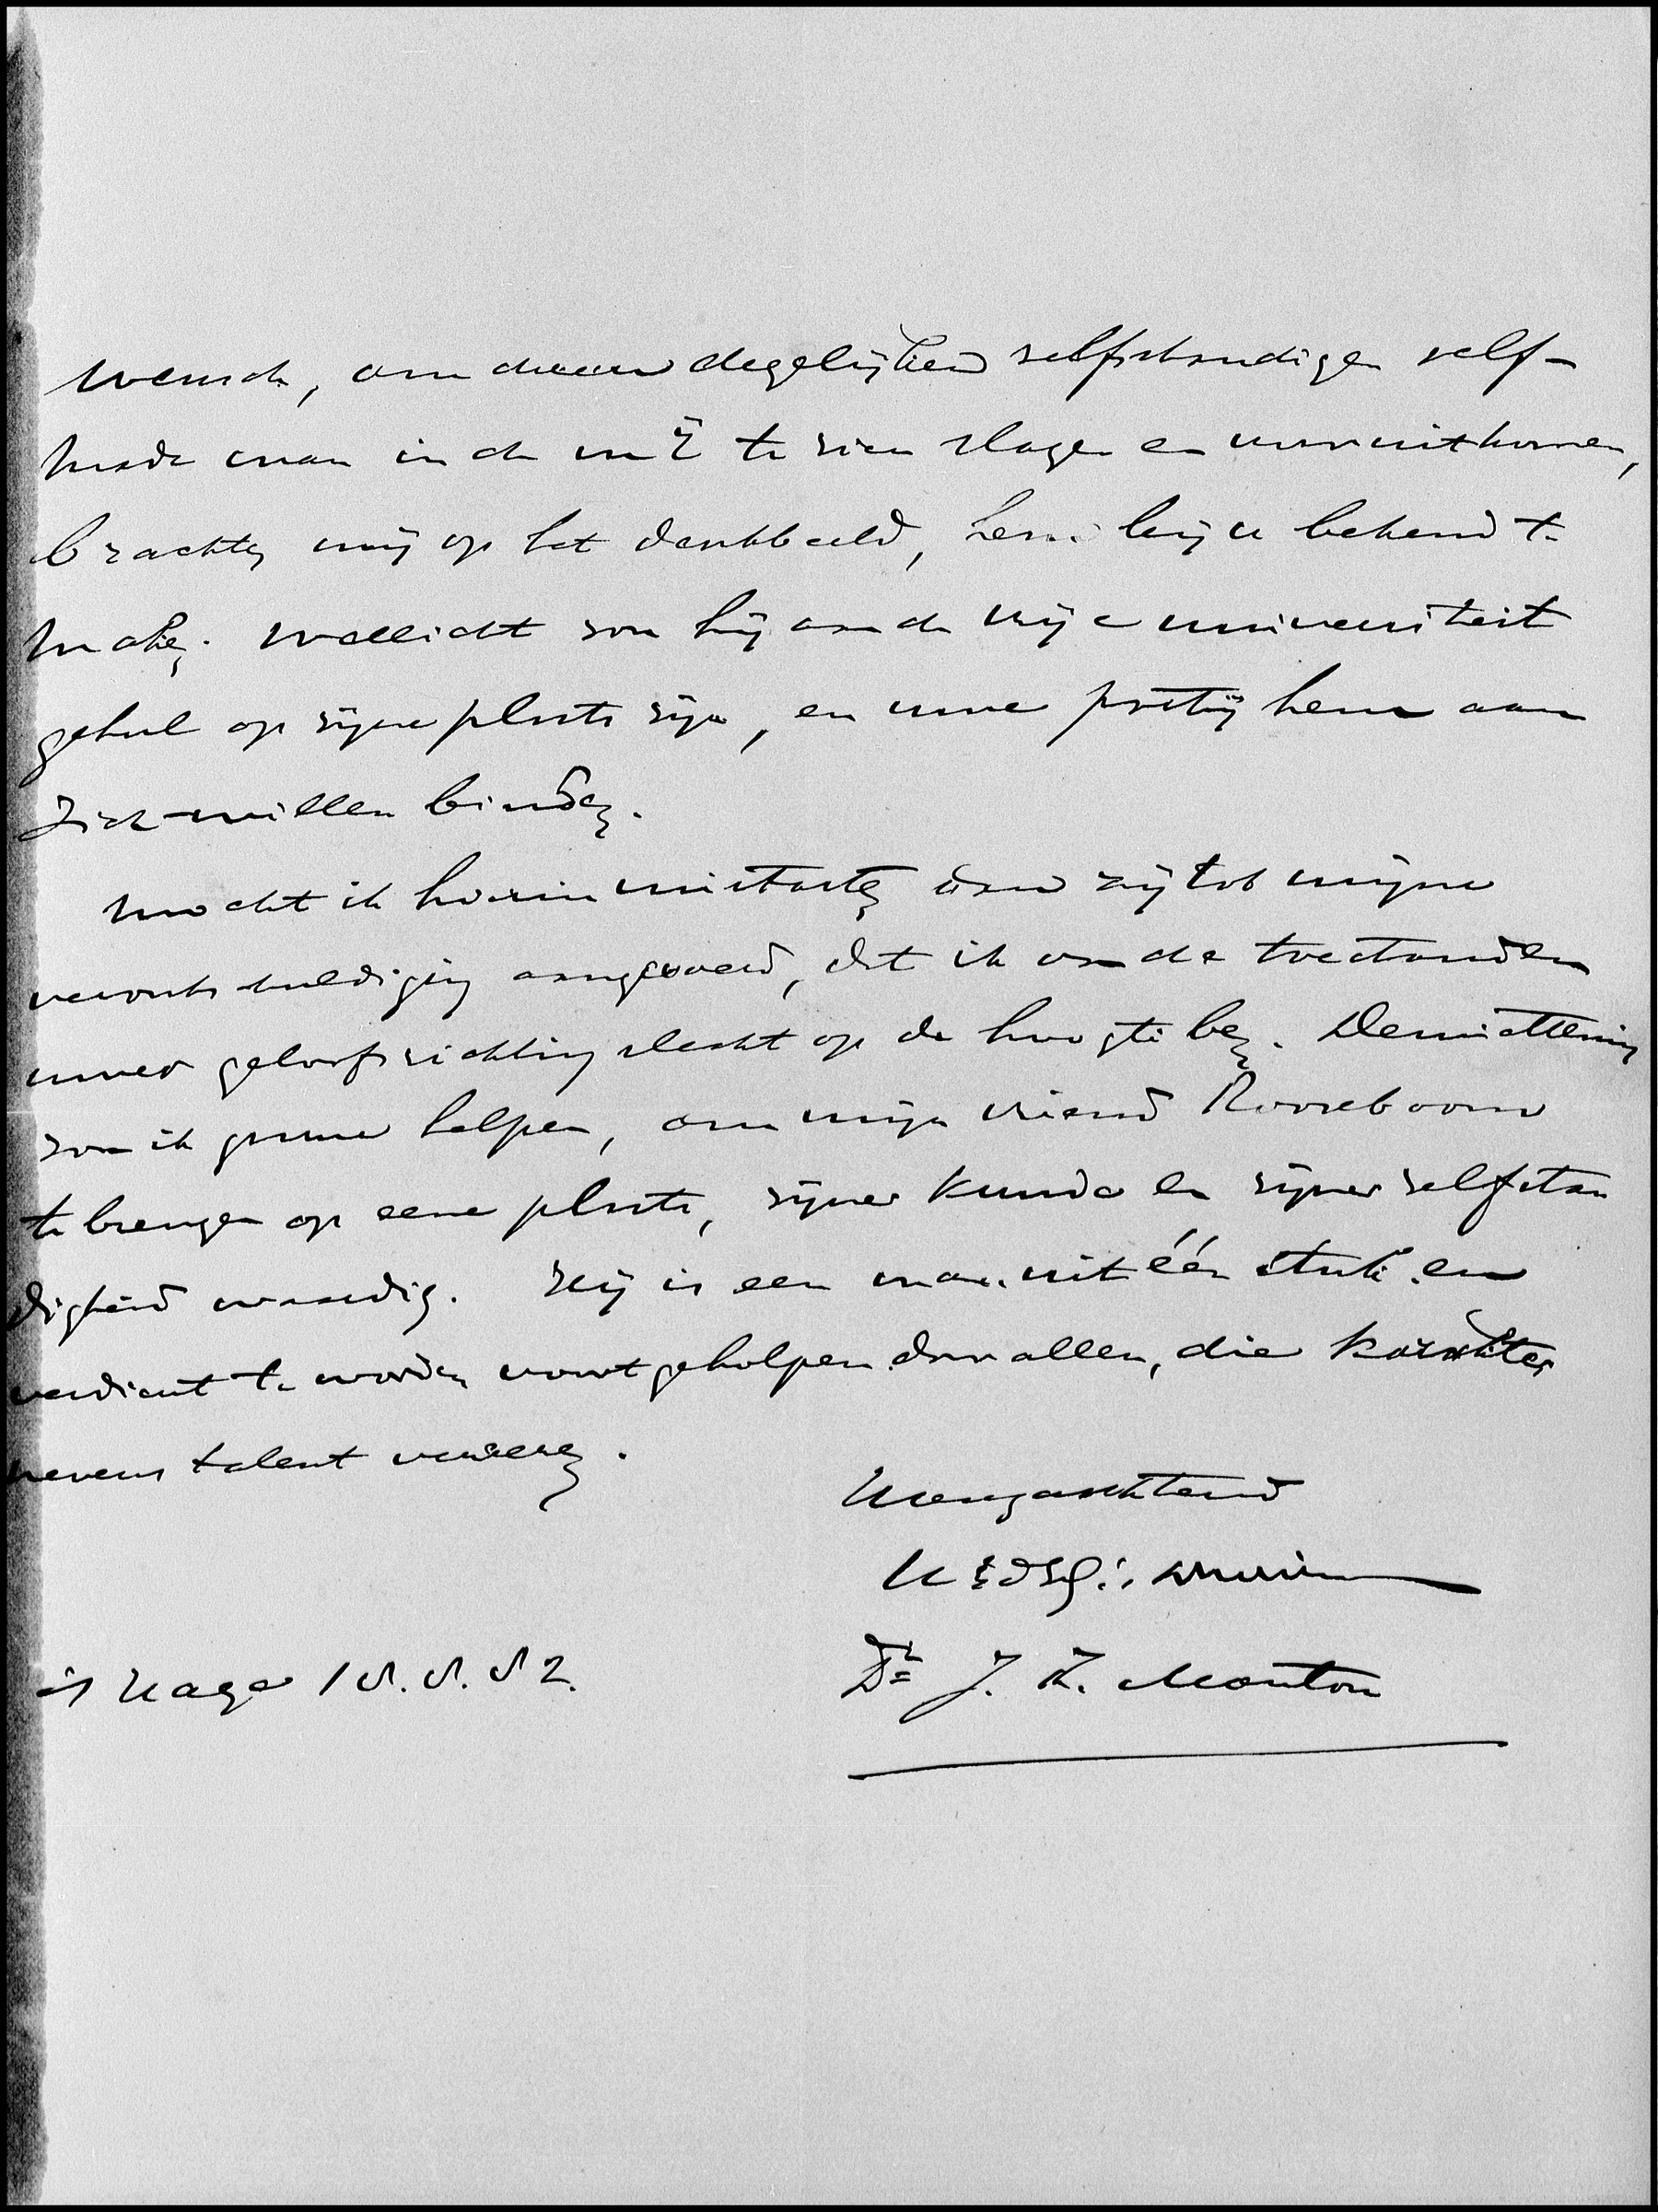 wensch, om dezen degelijken zelfstandigen self-
made man in de mij te zien slagen en vooruitkomen,
brachten mij op het denkbeeld, hem bij u bekend te
maken. Wellicht zou hij aan de vrije universiteit
geheel op zijne plaats zijn, en uwe partij hem aan
zich willen binden.
Mocht ik hierin mistasten dan zij tot mijne
verontschuldiging aangevoerd, dat ik van de toestanden
uwer geloofsrichting slecht op de hoogte ben. Demiettemin
zou ik gaarne helpen, om mijn vriend Roozeboom
te brengen op eene plaats, zijner kunde en zijner zelfstan
digheid waardig. Hij is een man uit één stuk en
verdient te worden voortgeholpen door allen, die karakter
nevens talent vereeren.
Hoogachtend
UEd
Dr J. Th. Mouton
's Hage 18.8.82.